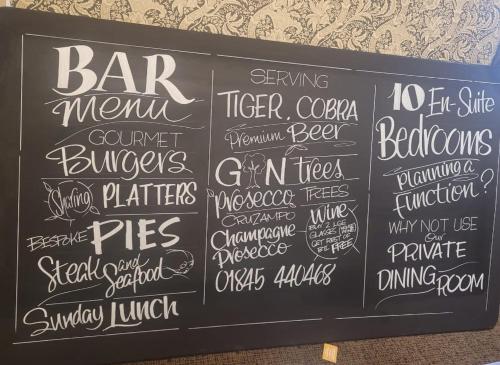 BAR
Menu
GOURMET
Burgers
Sharing PLATTERS
BESPOKE PIES
Steak and Seafood
Sunday Lunch
SERVING
TIGER, COBRA
Premium Beer
GIN trees
Prosecco TREES
CRUZAMPO
Champagne
Prosecco
Wine
BUY 2 LGE
GLASSES
GET REST OF
BTL FREE
01845 440468
10 En-Suite
Bedrooms
planning a
function?
WHY NOT USE
Our
PRIVATE
DINING ROOM